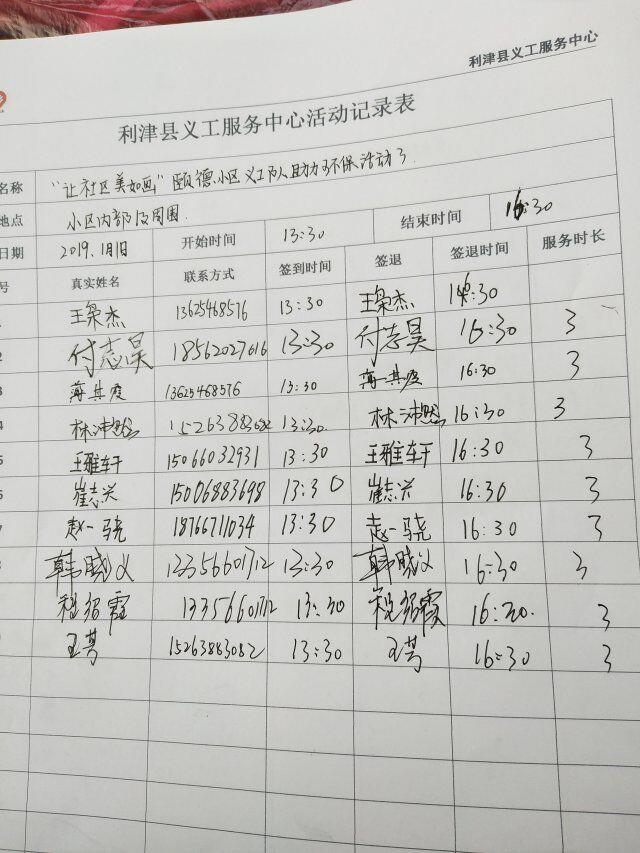 利津县义工服务中心
利津县义工服务中心活动记录表
名称 "让社区美如画"颐德小区义工队人助力环保活动了
地点 小区内部及周围.
日期 2019.1月1日 开始时间 13:30 结束时间 16:30
号 真实姓名 联系方式 签到时间 签退 签退时间 服务时长
王枭杰 13625468576 13:30 王枭杰 16:30
2 付志昊 18562027616 13:30 付志昊 16:30 3
3 薄其度 13625468576 13:30 薄其度 16:30 3
4 林沛然 15263883682 13:30. 林沛然 16:30 3
5 王雅轩 15066032931 13:30 王雅轩 16:30 3
6 崔志兴 15006883698 13:30 崔志兴 16:30 3
7 赵一骁 18766711034 13:30 赵一骁 16:30 3
8 韩晓义 13356601712 13:30 韩晓义 16:30 3
程绍霞 13356601712 13:30 程绍霞 16:30. 3
王芳 15263883082 13:30 王芳 16:30 3